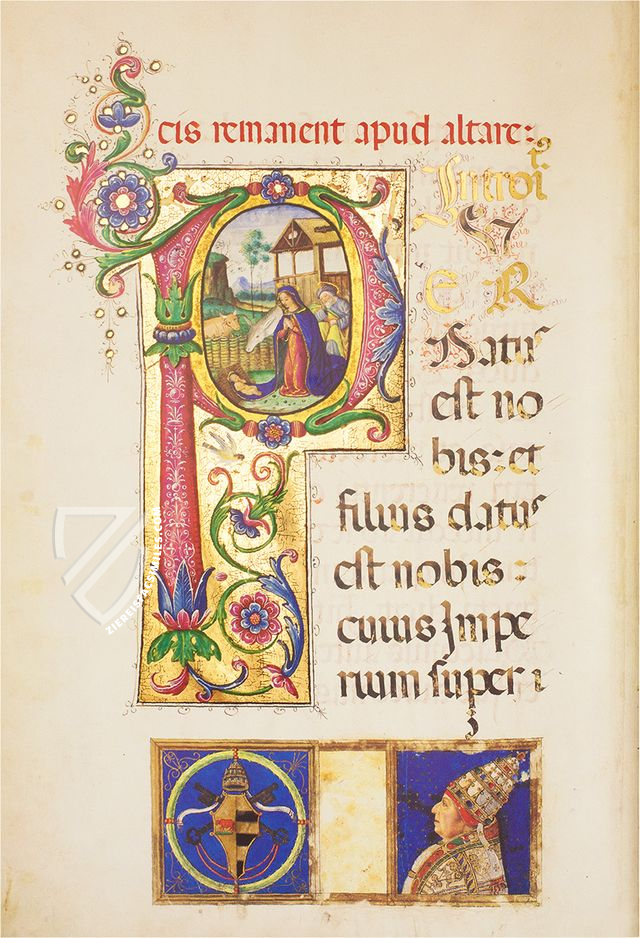 cis remanent apud altare:
Introit
P V
E R
Natus
est no
bis: et
filius datus
est nobis :
cuius Impe
rium super i
ZIEREIS FACSIMILES